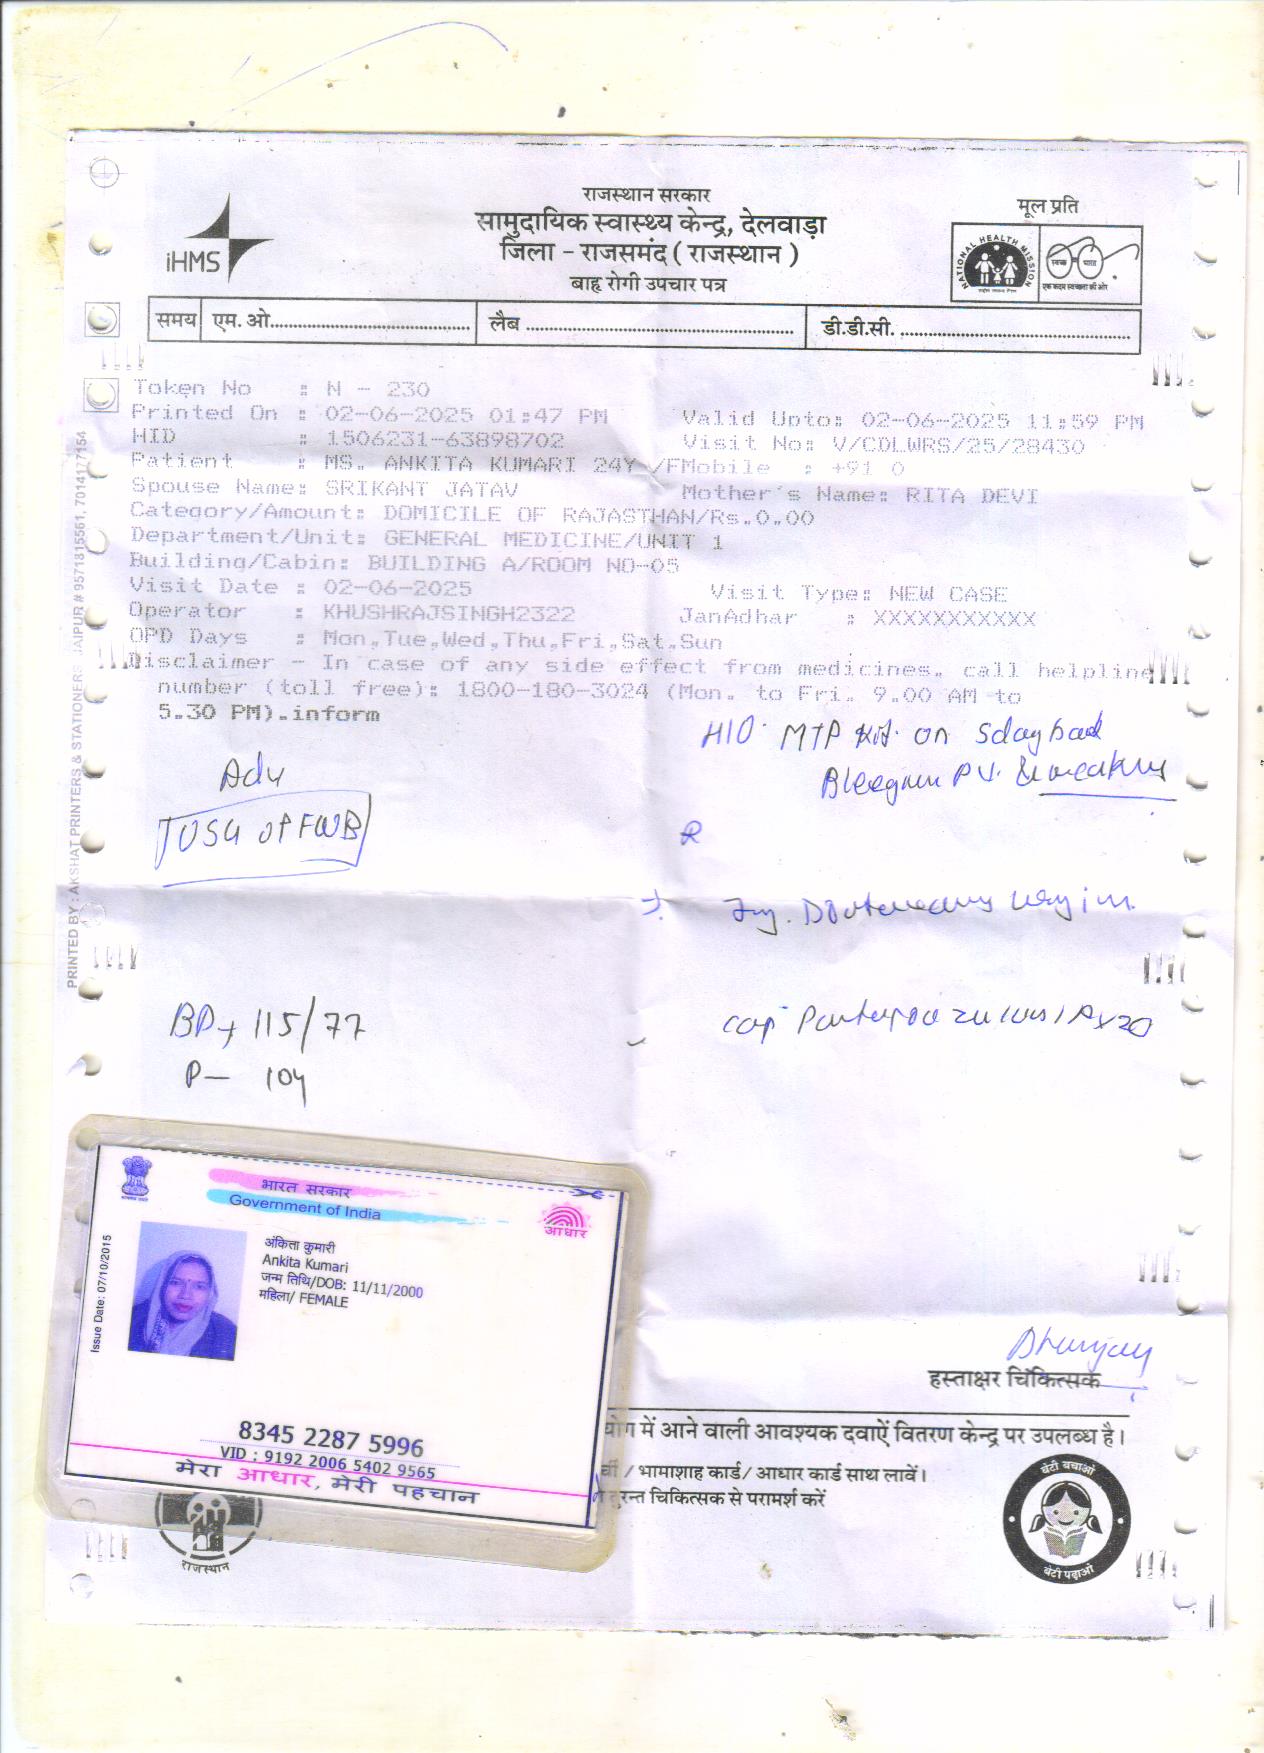 राजस्थान सरकार
सामुदायिक स्वास्थ्य केन्द्र, देलवाड़ा
जिला - राजसमंद ( राजस्थान )
बाह्य रोगी उपचार पत्र
iHMS
मूल प्रति
NATIONAL HEALTH MISSION
स्वच्छ भारत
एक कदम स्वच्छता की ओर
समय एम. ओ. लैब डी.डी.सी.
Token No : N - 230
Printed On : 02-06-2025 01:47 PM Valid Upto: 02-06-2025 11:59 PM
HID : 1506231-63898702 Visit No: V/CDLWRS/25/28430
Patient : MS. ANKITA KUMARI 24Y /F Mobile : +91 0
Spouse Name: SRIKANT JATAV Mother's Name: RITA DEVI
Category/Amount: DOMICILE OF RAJASTHAN/Rs.0.00
Department/Unit: GENERAL MEDICINE/UNIT 1
Building/Cabin: BUILDING A/ROOM NO-05
Visit Date : 02-06-2025 Visit Type: NEW CASE
Operator : KHUSHRAJSINGH2322 JanAdhar : XXXXXXXXXXX
OPD Days : Mon,Tue,Wed,Thu,Fri,Sat,Sun
Disclaimer - In case of any side effect from medicines, call helpline
number (toll free): 1800-180-3024 (Mon. to Fri. 9.00 AM to
5.30 PM).inform
H/O MTP Kit on 5day back
P.V. &
Adv
USG of FWB
R
Inj.
BP 115/77
P- 104
cap
हस्ताक्षर चिकित्सक
में आने वाली आवश्यक दवाऐं वितरण केन्द्र पर उपलब्ध है।
/ भामाशाह कार्ड/ आधार कार्ड साथ लावें।
तुरन्त चिकित्सक से परामर्श करें
राजस्थान
बेटी बचाओ
बेटी पढ़ाओ
PRINTED BY : AKSHAT PRINTERS & STATIONERS JAIPUR # 9571815561, 7014177154
भारत सरकार
Government of India
आधार
Issue Date: 07/10/2015
अंकिता कुमारी
Ankita Kumari
जन्म तिथि/DOB: 11/11/2000
महिला/ FEMALE
8345 2287 5996
VID : 9192 2006 5402 9565
मेरा आधार, मेरी पहचान